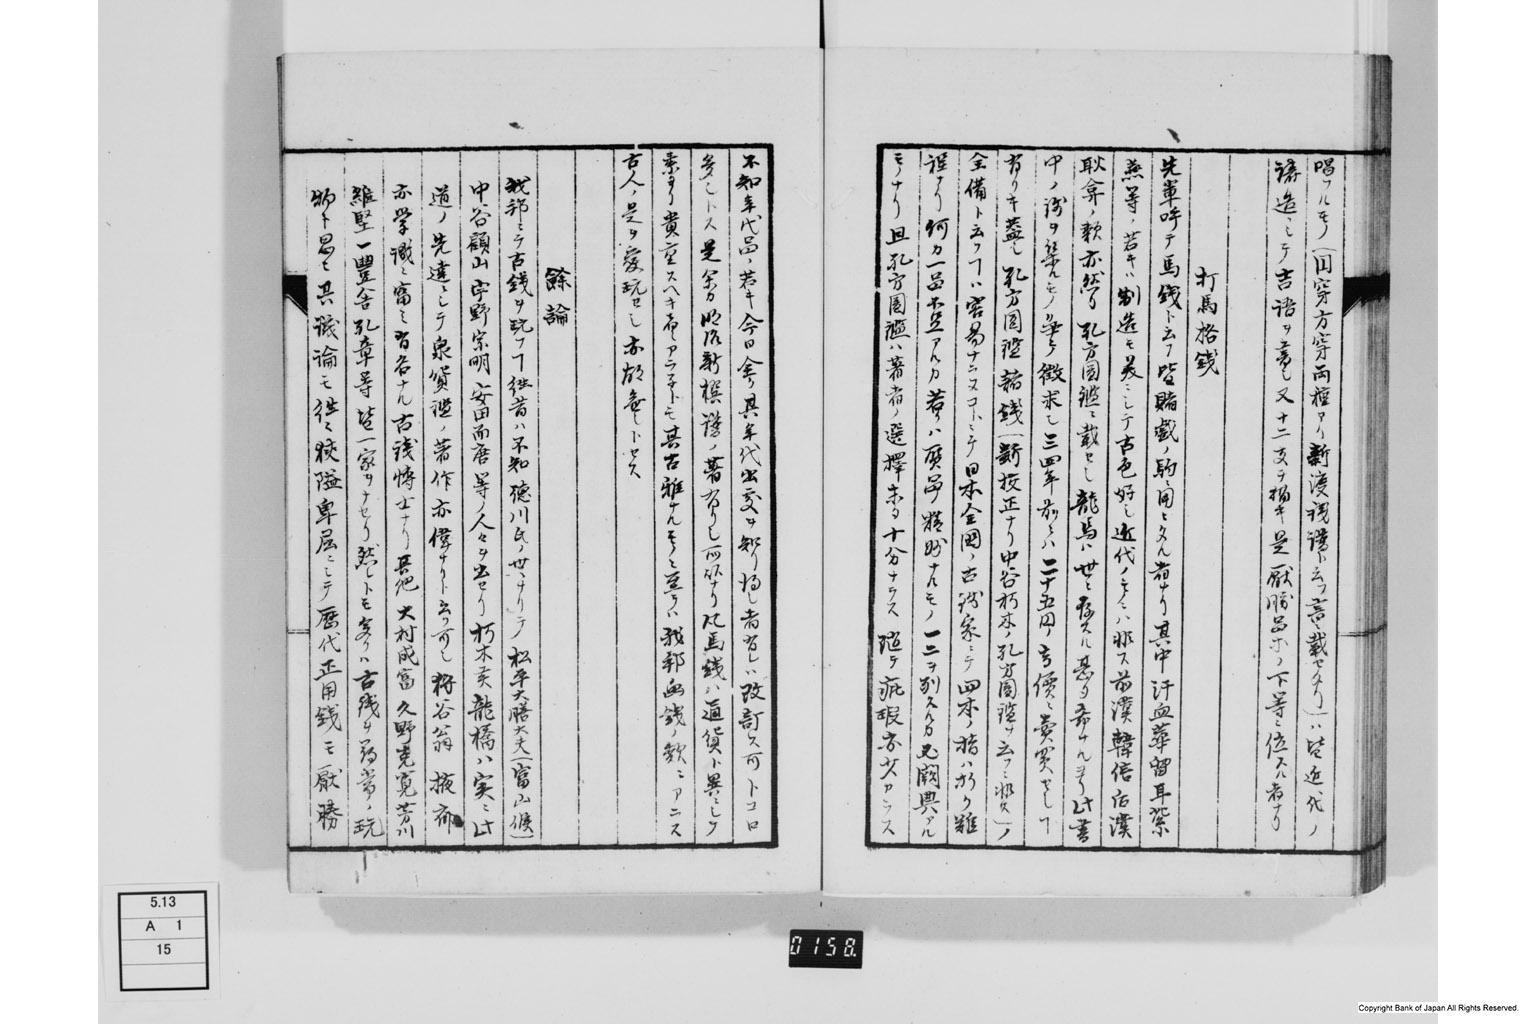 唱フルモノ(円穿方穿両種アリ新渡銭譜ト云フ書ニ載セタリ)ハ皆近代ノ
鋳造ニシテ吉語ヲ書シ又十二支ヲ描キ是厭勝品中ノ下等ニ位スル者ナリ
打馬格銭
先輩呼テ馬銭ト云フ皆賭戯ノ具ニ用ヒタル者ナリ其中汗血華騮耳
燕等ノ若キハ制造モ美ニシテ古色好シ近代ノモノニハ非ス前漢韓信后漢
耿弇ノ類亦然リ孔方図鑑ニ載セシ龍馬ハ世ニ存スル甚タ希ナルヨリ此書
中ノ銭ヲ集ルモノ争テ徴求シ三四年前ニハ二十五円ノ高價ニ賣買セシ
有リキ蓋シ孔方図鑑諸銭(新校正ナリ中谷朽木ノ孔方図鑑ヲ云フニ非ス)ノ
全備ト云フハ容易ナラヌコトニテ日本全国ノ古銭家ニテ四本ノ指ハ折り難
程ナリ何カ一品不足アルカ若クハ質品精好ナルモノ一二ヲ列スルカ
モノナリ且孔方図鑑ハ著者ノ選擇未タ十分ナラス随テ疵瑕亦少カラス
不知年代品ノ若キ今日全ク其年代出処ヲ知リ得シ者有レハ改訂ス可トコロ
多シトス是余カ明治新撰譜ノ著有リシ所以ナリ凡馬銭ハ通貨ト異ニシテ
素ヨリ貴重スヘキ者ニアラネトモ其古雅ナルモノニ至テハ我邦画銭ノ類ニアラス
古人ノ是ヲ愛玩セシ亦故無シトセス
餘論
我邦ニテ古銭ヲ玩フ徃昔ハ不知徳川氏ノ世ニナリテ松平大膳大夫(富山侯)
中谷顧山宇野宗明安田而唐等ノ人々ヲ出セリ朽木侯龍橋ハ実ニ此
道ノ先達ニシテ泉貨鑑ノ著作亦偉ナリト云フ可シ狩谷翁掖斎
亦学識ニ富ミ有名ナル古銭博士ナリ其他大村成富久野克寛芳川
維堅一豊舎孔章等皆一家ヲナセリ然レトモ多クハ古銭ヲ尋常ノ玩
物ト思ヒ其議論モ徃々狭隘卑屈ニシテ歴代正用銭モ厭勝
5.13
A 1
15
0158.
Copyright Bank of Japan All Rights Reserved.